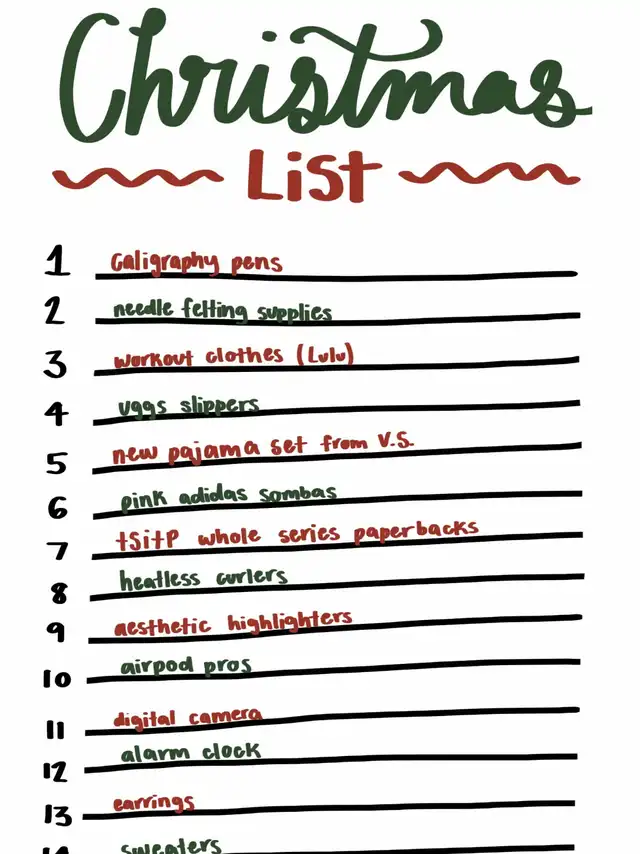 Christmas
List
1 caligraphy pens
2 needle felting supplies
3 workout clothes (Lulu)
4 uggs slippers
5 new pajama set from V.S.
6 pink adidas sombas
7 tSitP whole series paperbacks
8 heatless curlers
9 aesthetic highlighters
10 airpod pros
11 digital camera
12 alarm clock
13 earrings
14 sweaters